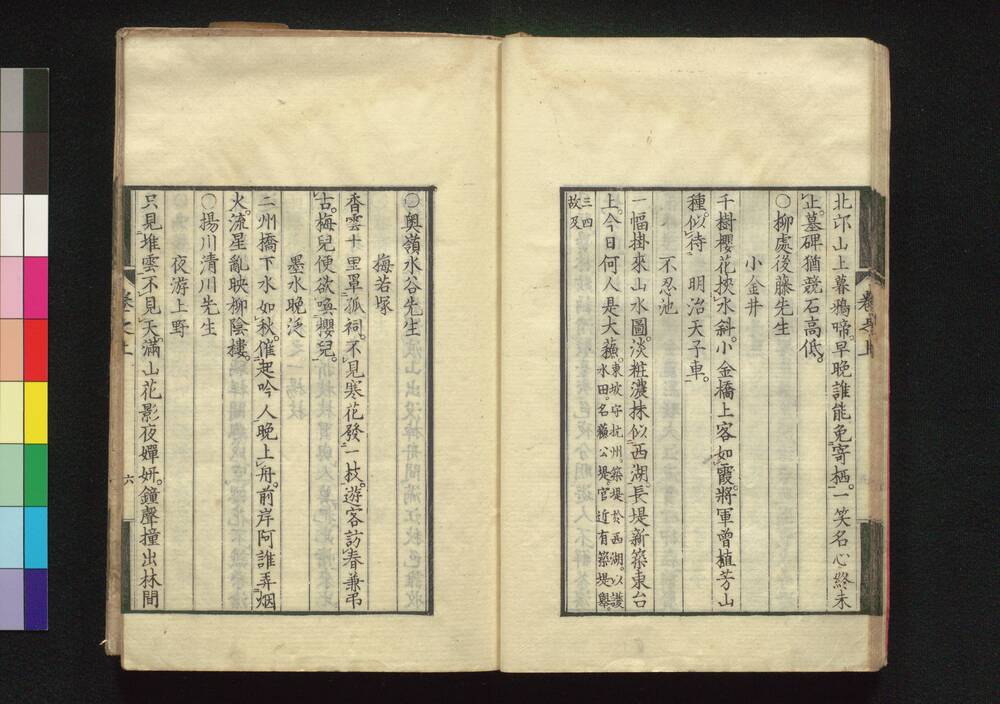 北邙山上暮鴉啼。早晚誰能免寄栖。一笑名心終未
正。墓碑猶競石高低。
〇柳處後藤先生
小金井
千樹櫻花挾水斜。小金橋上客如霞。將軍曾植芳山
種。似待 明治天子車。
不忍池
一幅掛來山水圖。淡粧濃抹似西湖。長堤新築東台
上。今日何人是大蘓。東坡守杭州。築堤於西湖。以護
水田。名蘓公堤。官近有築堤擧。
三四
故及
〇奥嶺水谷先生
梅若塚
香雲十里罩孤祠。不見寒花發一枝。遊客訪春兼弔
古。梅兒便欲喚櫻兒。
墨水晚泛
二州橋下水如秋。催起吟人晚上舟。前岸阿誰弄烟
火。流星亂映柳陰樓。
〇揚川清川先生
夜游上野
只見堆雲不見天。滿山花影夜嬋妍。鐘聲撞出林間
六